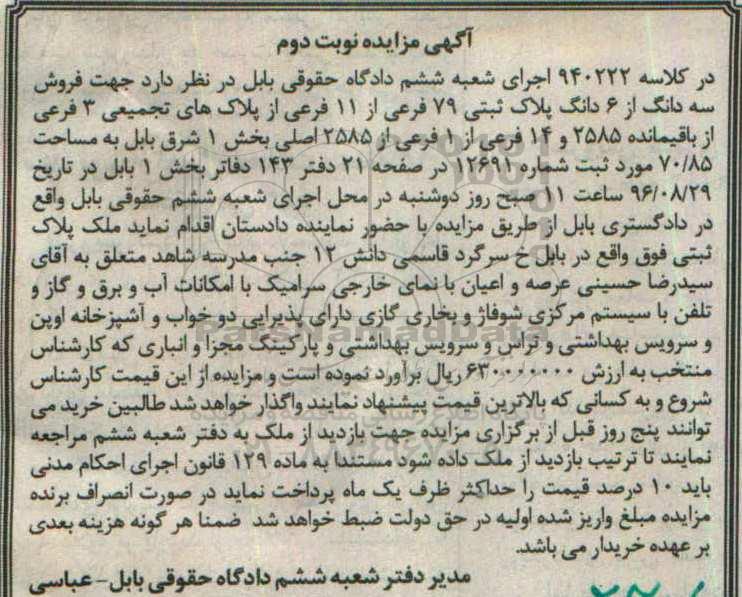 آگهی مزایده نوبت دوم
در کلاسه ۹۴۰۲۲۲ اجرای شعبه ششم دادگاه حقوقی بابل در نظر دارد جهت فروش
سه دانگ از ۶ دانگ پلاک ثبتی ۷۹ فرعی از ۱۱ فرعی از پلاک های تجمیعی ۳ فرعی
از باقیمانده ۲۵۸۵ و ۱۴ فرعی از ۱ فرعی از ۲۵۸۵ اصلی بخش ۱ شرق بابل به مساحت
۷۰/۸۵ مورد ثبت شماره ۱۲۶۹۱ در صفحه ۲۱ دفتر ۱۴۳ دفاتر بخش ۱ بابل در تاریخ
۹۶/۰۸/۲۹ ساعت ۱۱ صبح روز دوشنبه در محل اجرای شعبه ششم حقوقی بابل واقع
در دادگستری بابل از طریق مزایده با حضور نماینده دادستان اقدام نماید ملک پلاک
ثبتی فوق واقع در بابل خ سرگرد قاسمی دانش ۱۲ جنب مدرسه شاهد متعلق به آقای
سیدرضا حسینی عرصه و اعیان با نمای خارجی سرامیک با امکانات آب و برق و گاز و
تلفن با سیستم مرکزی شوفاژ و بخاری گازی دارای پذیرایی دو خواب و آشپزخانه اوپن
و سرویس بهداشتی و تراس و سرویس بهداشتی و پارکینگ مجزا و انباری که کارشناس
منتخب به ارزش ۶۳۰۰۰۰۰۰۰ ریال برآورد نموده است و مزایده از این قیمت کارشناس
شروع و به کسانی که بالاترین قیمت پیشنهاد نمایند واگذار خواهد شد طالبین خرید می
توانند پنج روز قبل از برگزاری مزایده جهت بازدید از ملک به دفتر شعبه ششم مراجعه
نمایند تا ترتیب بازدید از ملک داده شود مستندا به ماده ۱۲۹ قانون اجرای احکام مدنی
باید ۱۰ درصد قیمت را حداکثر ظرف یک ماه پرداخت نماید در صورت انصراف برنده
مزایده مبلغ واریز شده اولیه در حق دولت ضبط خواهد شد ضمنا هر گونه هزینه بعدی
بر عهده خریدار می باشد.
مدیر دفتر شعبه ششم دادگاه حقوقی بابل- عباسی
ParsNamadData